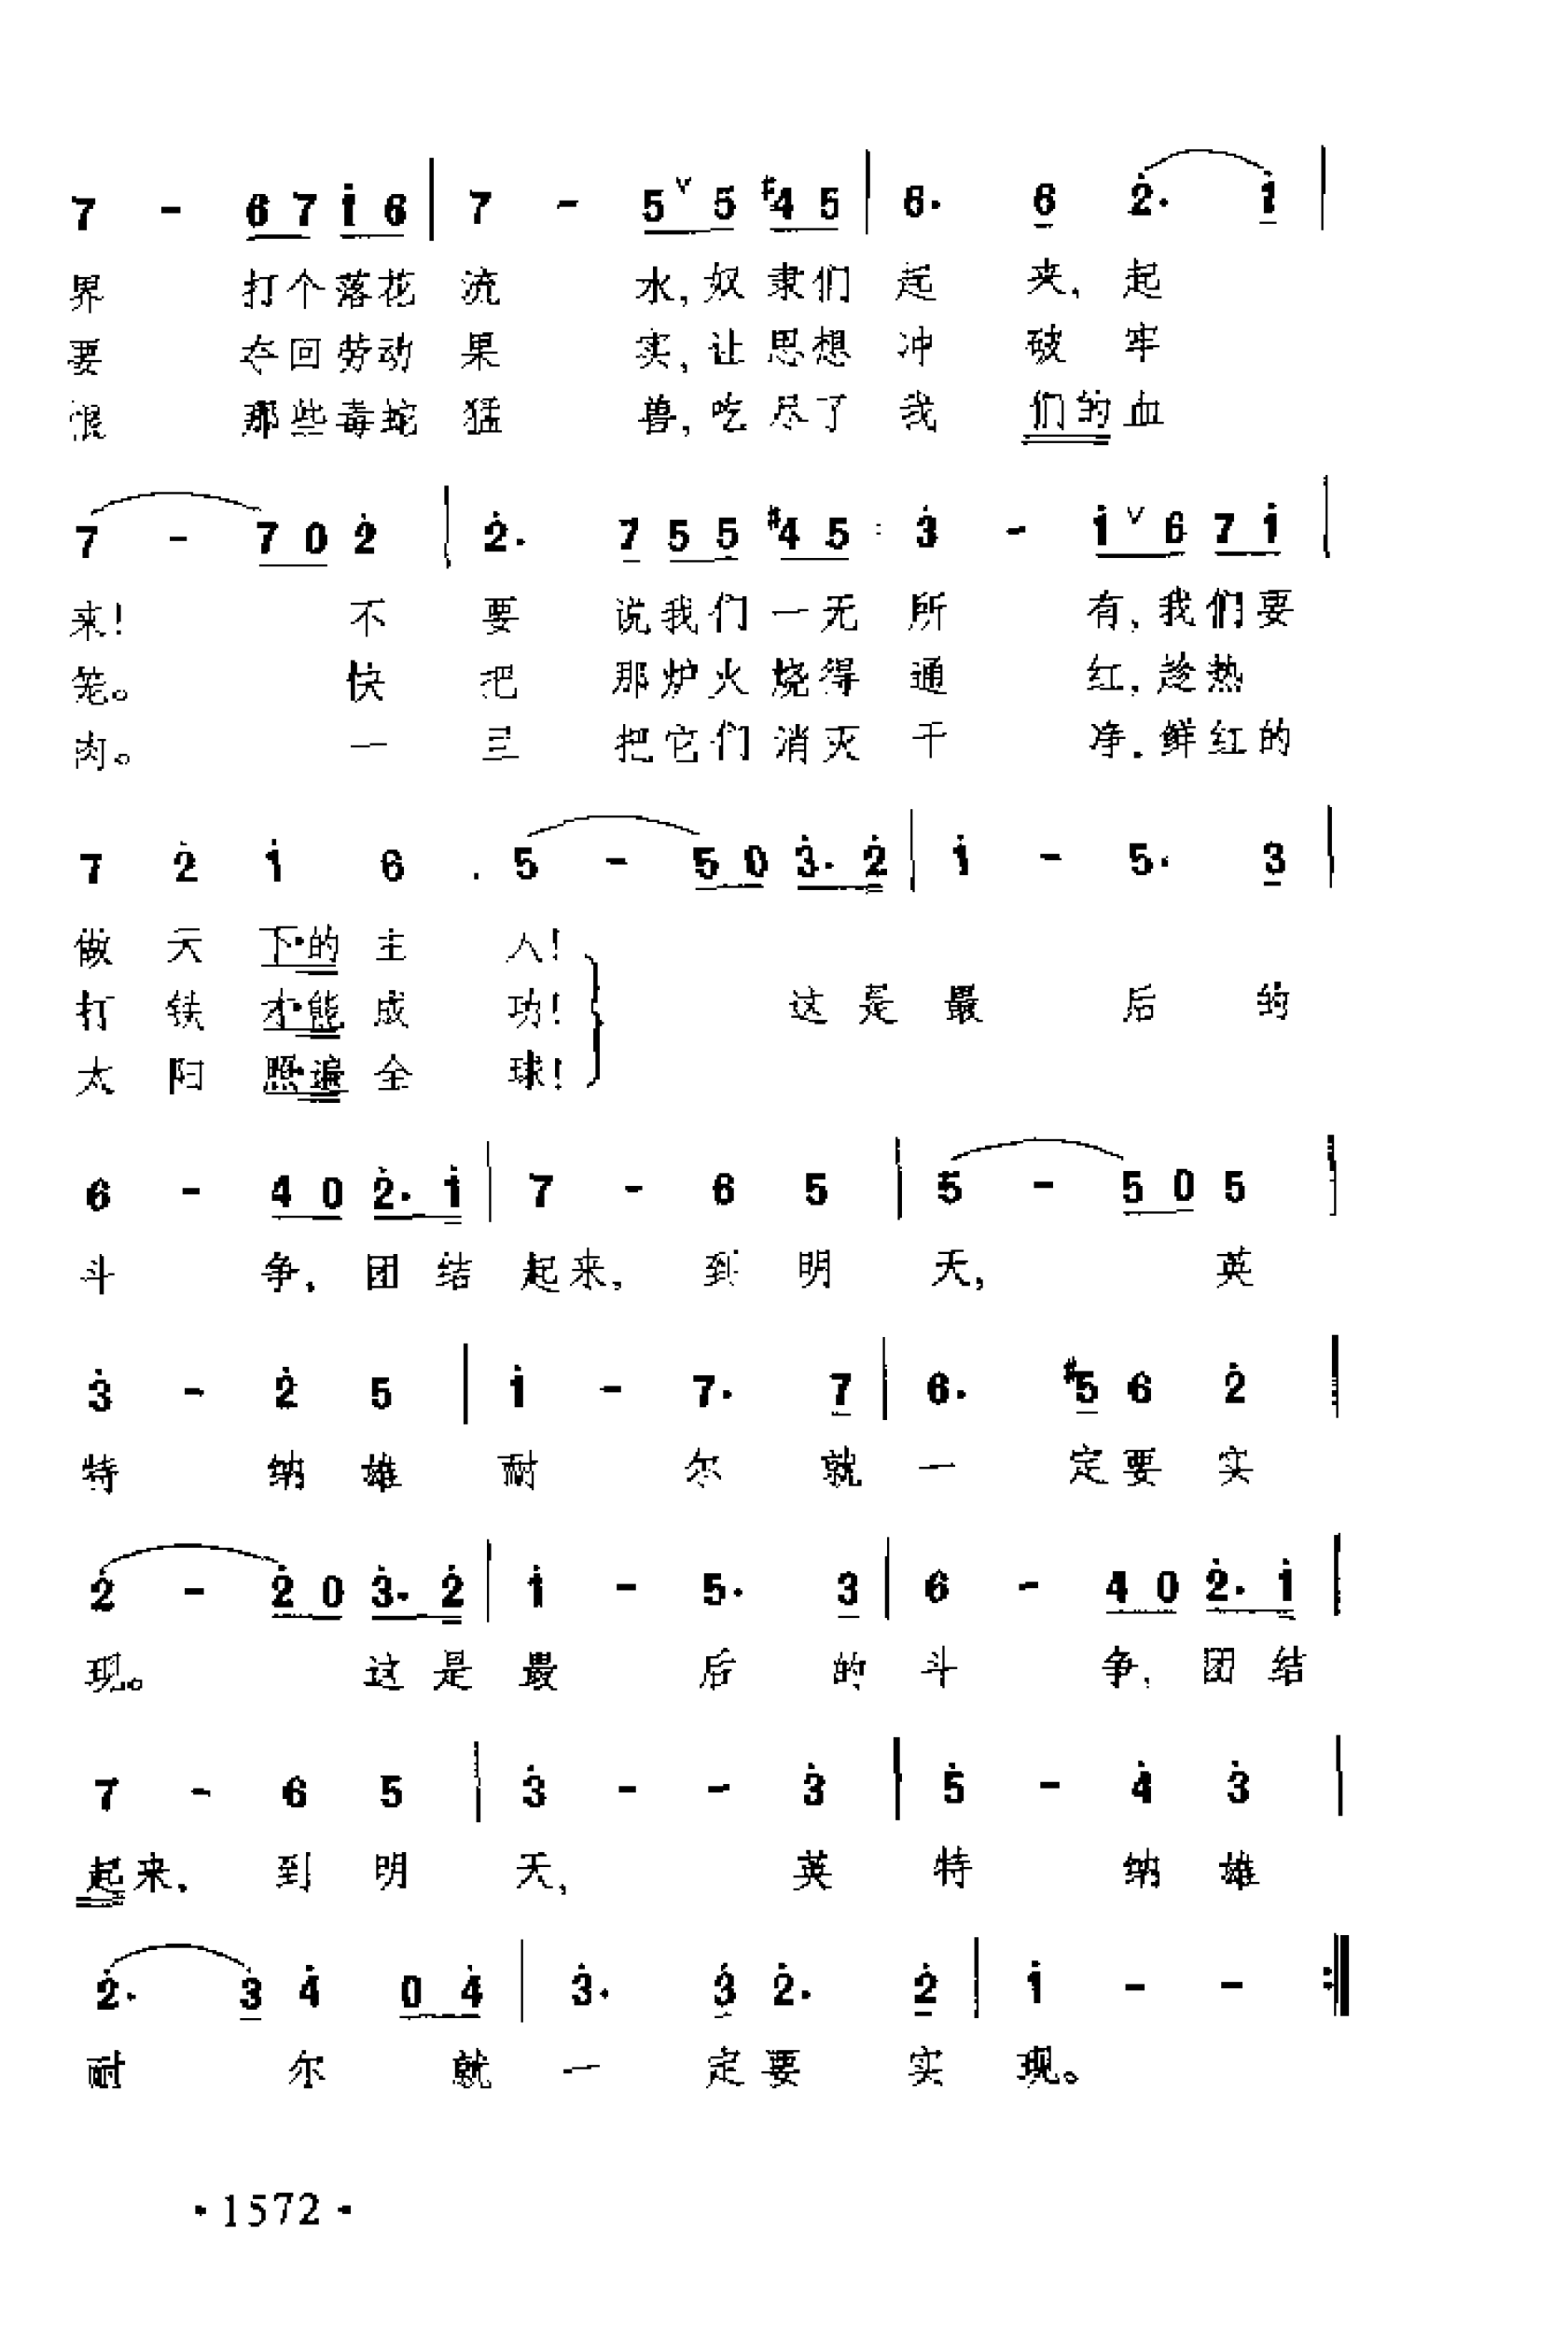 7 - 6 7 i 6 | 7 - 5 ∨ 5 #4 5 | 6. 6 2̇. i |
界 打个落花 流 水,奴 隶们 起 来, 起
要 夺回劳动 果 实,让 思想 冲 破 牢
恨 那些毒蛇 猛 兽,吃 尽了 我 们的 血
7 - 7 0 2̇ | 2̇. 7 5 5 #4 5 | 3̇ - i ∨ 6 7 i |
来! 不 要 说我们 一无 所 有,我们要
笼。 快 把 那炉火 烧得 通 红,趁热
肉。 一 旦 把它们 消灭 干 净.鲜红的
7 2̇ i 6 | 5 - 5 0 3̇. 2̇ | i - 5. 3 |
做 天 下·的 主 人!
打 铁 才·能 成 功! 这 是 最 后 的
太 阳 照·遍 全 球!
6 - 4 0 2̇. i | 7 - 6 5 | 5 - 5 0 5 |
斗 争, 团 结 起来, 到 明 天, 英
3̇ - 2̇ 5 | i - 7. 7 | 6. #5 6 2̇ |
特 纳 雄 耐 尔 就 一 定 要 实
2̇ - 2̇ 0 3̇. 2̇ | i - 5. 3 | 6 - 4 0 2̇. i |
现。 这 是 最 后 的 斗 争, 团 结
7 - 6 5 | 3̇ - - 3̇ | 5̇ - 4̇ 3̇ |
起来, 到 明 天, 英 特 纳 雄
2̇. 3̇ 4̇ 0 4̇ | 3̇. 3̇ 2̇. 2̇ | i - - :‖
耐 尔 就 一 定 要 实 现。
· 1572 ·